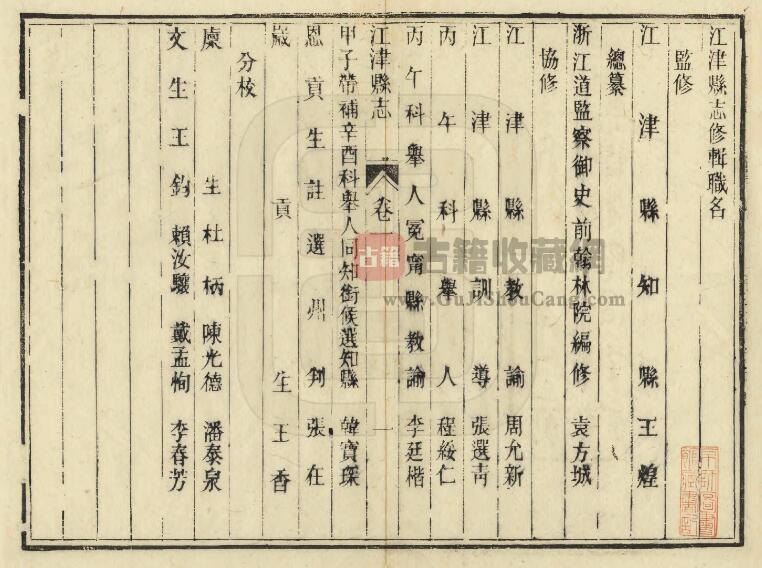 江津縣志修輯職名
監修
江津縣知縣王煌
總纂
浙江道監察御史前翰林院編修 袁方城
協修
江津縣教諭周允新
江津縣訓導張選青
丙午科舉人程綏仁
丙午科舉人冕甯縣教諭李廷楷
江津縣志 卷一 一
甲子帶補辛酉科舉人同知銜候選知縣 韓寶琛
恩貢生註選州判張在
歲貢生王香
分校
廩生杜柄 陳光德 潘泰泉
文生王鈞 賴汝驤 戴孟恂 李春芳
古籍
古籍收藏網
www.GuJiShouCang.com